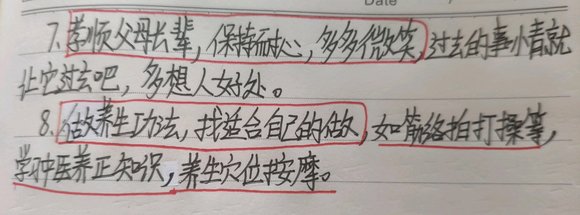 Date
7.孝顺父母长辈，保持耐心，多多微笑，过去的事情就
让它过去吧，多想人好处。
8.做养生功法，找适合自己的做，如筋络拍打操等，
学中医养正知识，养生穴位按摩。